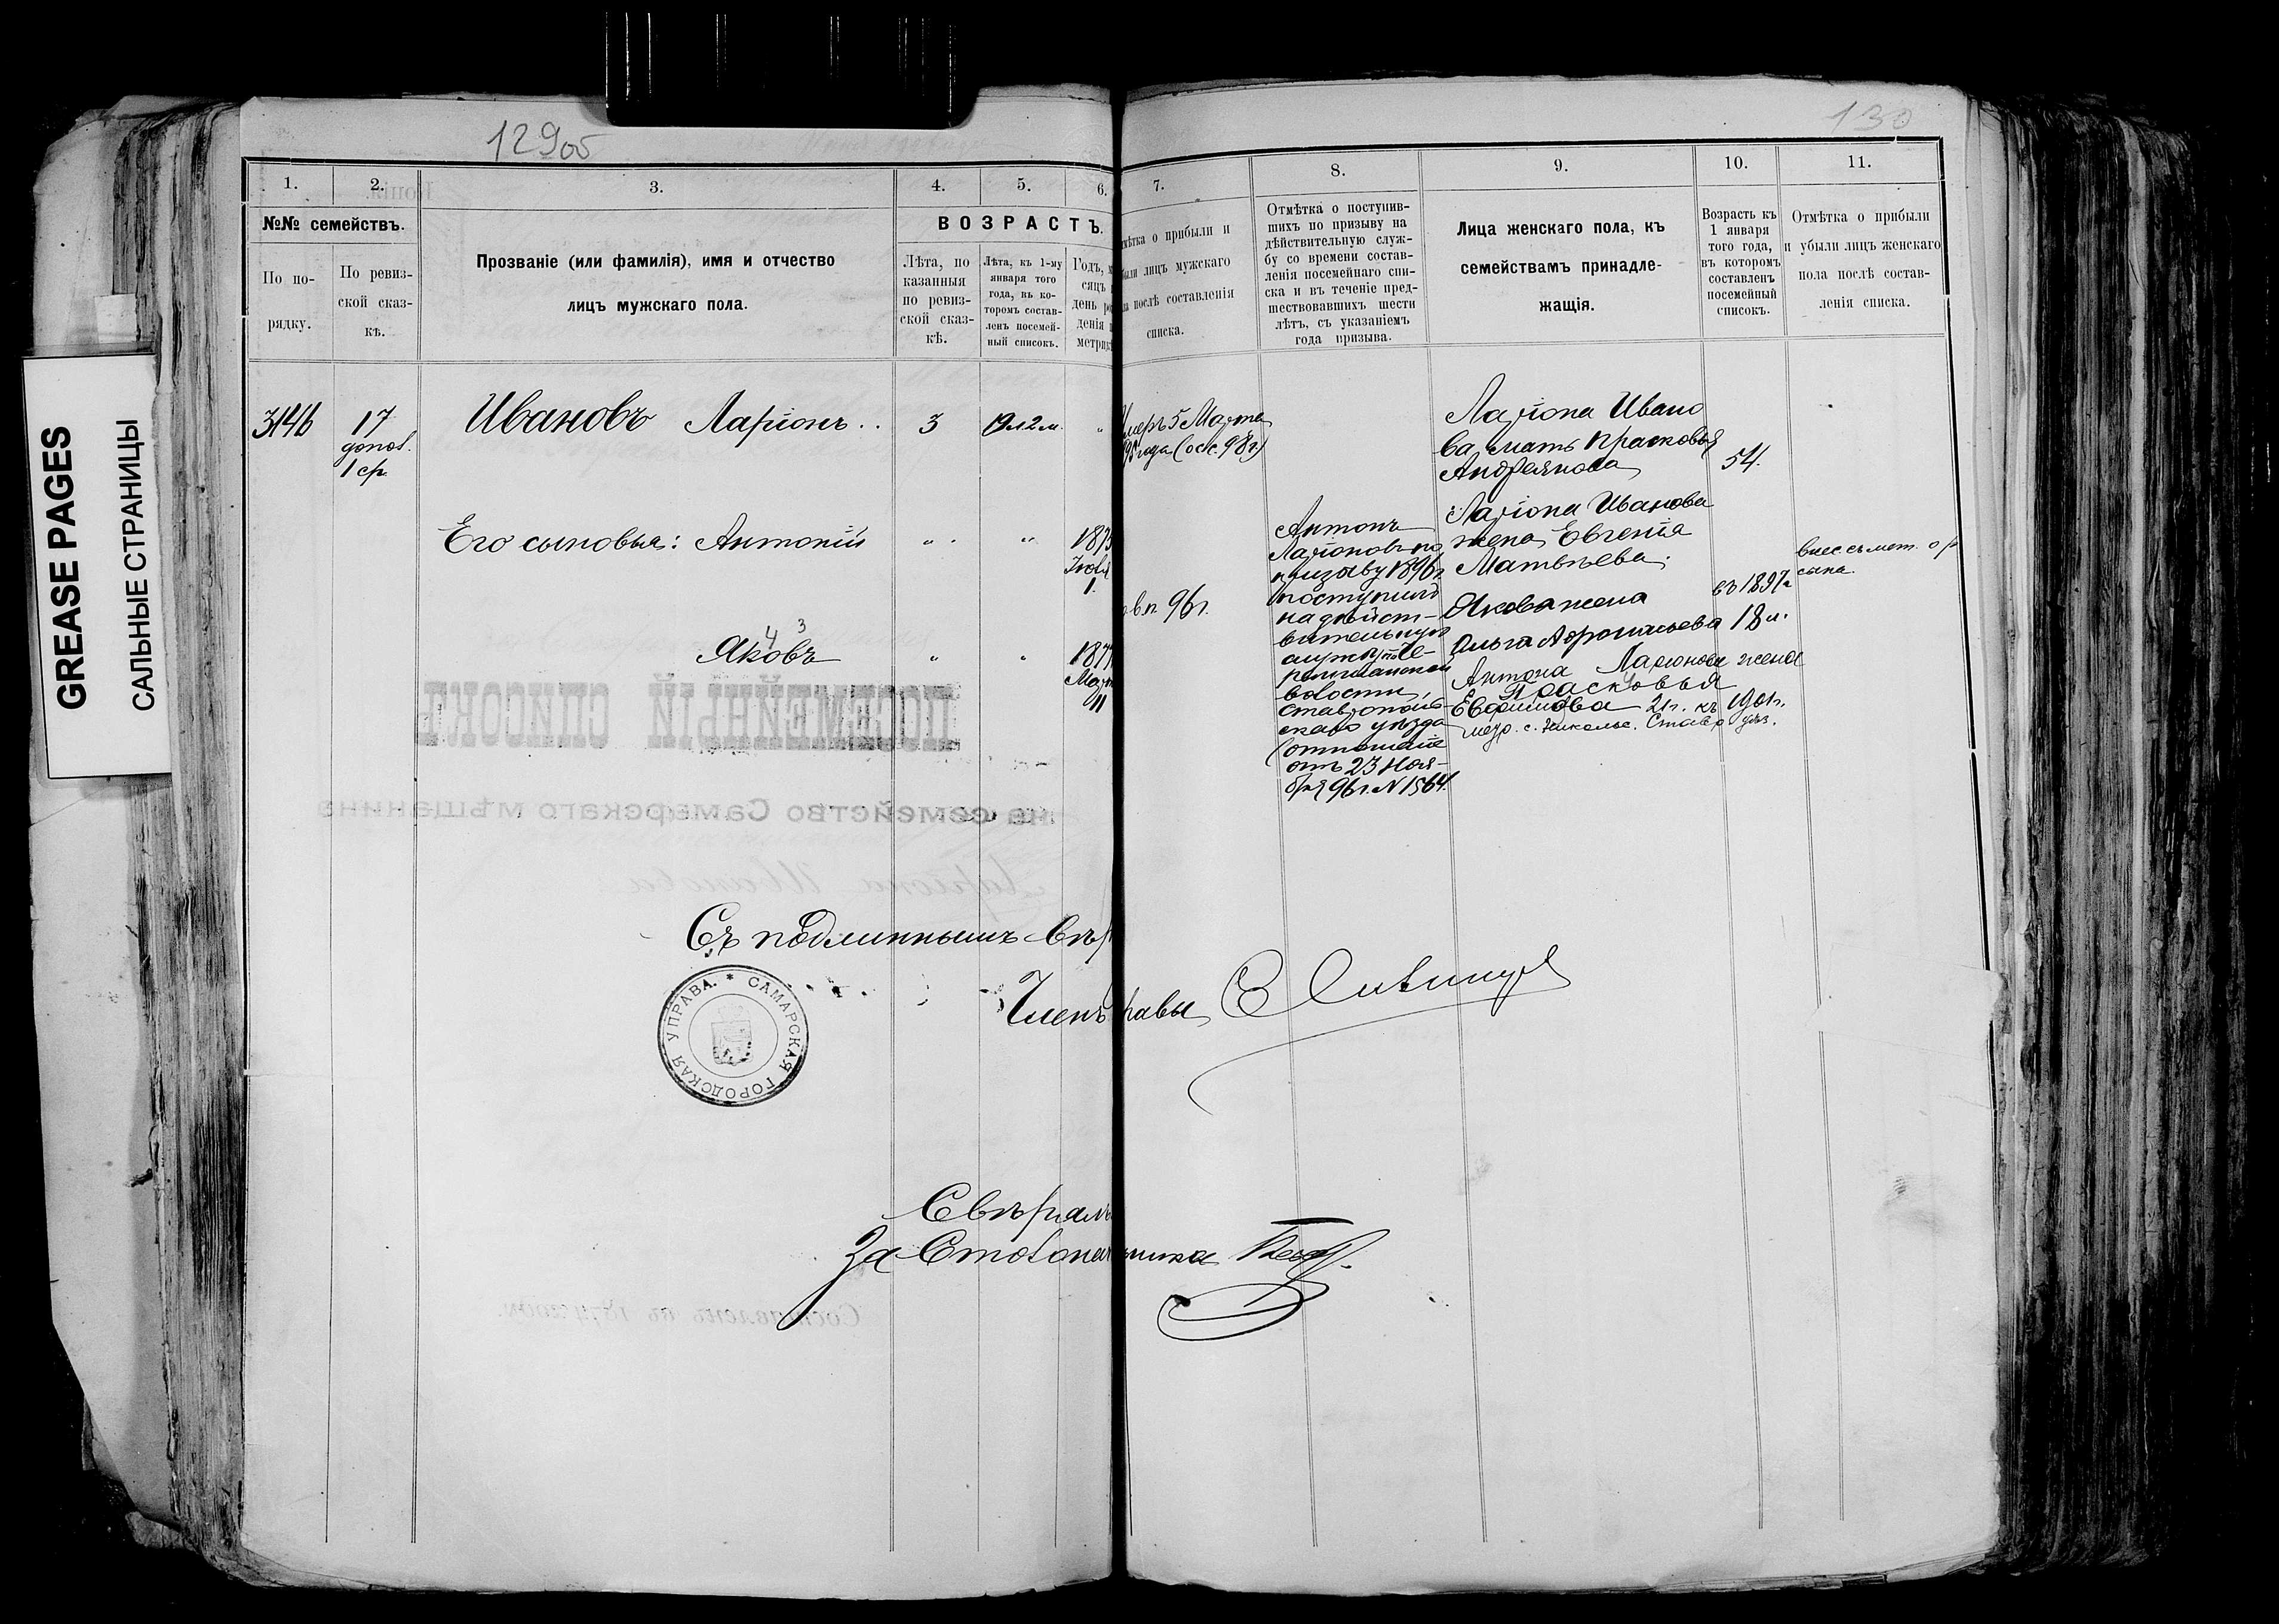 GREASE PAGES
САЛЬНЫЕ СТРАНИЦЫ
129об
130
1.
2.
3.
4.
5.
6.
7.
8.
9.
10.
11.
№№ семействъ.
По по-
рядку.
По ревиз-
ской сказ-
кѣ.
Прозваніе (или фамилія), имя и отчество
лицъ мужскаго пола.
ВОЗРАСТЪ.
Лѣта, по
казанныя
по ревиз-
ской сказ-
кѣ.
Лѣта, къ 1-му
января того
года, въ ко-
торомъ состав-
ленъ посемей-
ный списокъ.
Годъ, м
сяцъ
день ро
денія
метрик
мѣтка о прибыли и
были лицъ мужскаго
послѣ составленія
списка.
Отмѣтка о поступив-
шихъ по призыву на
дѣйствительную служ-
бу со времени состав-
ленія посемейнаго спи-
ска и въ теченіе пред-
шествовавшихъ шести
лѣтъ, съ указаніемъ
года призыва.
Лица женскаго пола, къ
семействамъ принадле-
жащія.
Возрасть къ
1 января
того года,
въ которомъ
составленъ
посемейный
списокъ.
Отмѣтка о прибыли
и убыли лицъ женскаго
пола послѣ состав-
ленія списка.
3146
17
допол.
1 ср.
Ивановъ Ларіонъ
3
19 л 2 м.
"
меръ 5 Марта
95 года (осс. 98 г)
Ларіона Ивано
ва мать Прасковья
Андреянова
54.
Его сыновья: Антоній
" "
1875
Іюля
1.
Антонъ
Ларіоновъ по
призыву 1896 г
поступилъ
на дѣйст-
вительную
службу по Че-
ремшанской
волости,
Ставрополь-
скаго уѣзда
(отношеніе
отъ 23 Ноя-
бря 96 г. N 1564.
Ларіона Иванова
жена Евгенія
Матвѣева.
внес съ мет. о р
сына.
Яковъ
4 3
" "
187
Мар
11
96 г.
Якова жена
Ольга Афонасьева
въ 1897 г
18 л.
Антона Ларіонова жена
Прасковья
Евфимова 21 г. къ 1901 г.
с. Никольс. Ставр. уѣз.
ПОСЕМЕЙНЫЙ СПИСОКЪ
на семейство Самарскаго мѣщанина
Ларіона Иванова
Съ подлиннымъ вѣр
Членъ равы
САМАРСКАЯ ГОРОДСКАЯ УПРАВА.
Свѣрялъ
За Столонач ьника
Составленъ въ 1874 году.